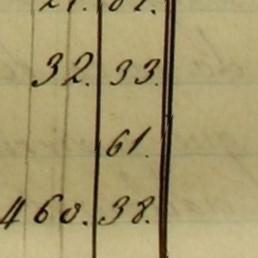 32. 33.
61.
460. 38.